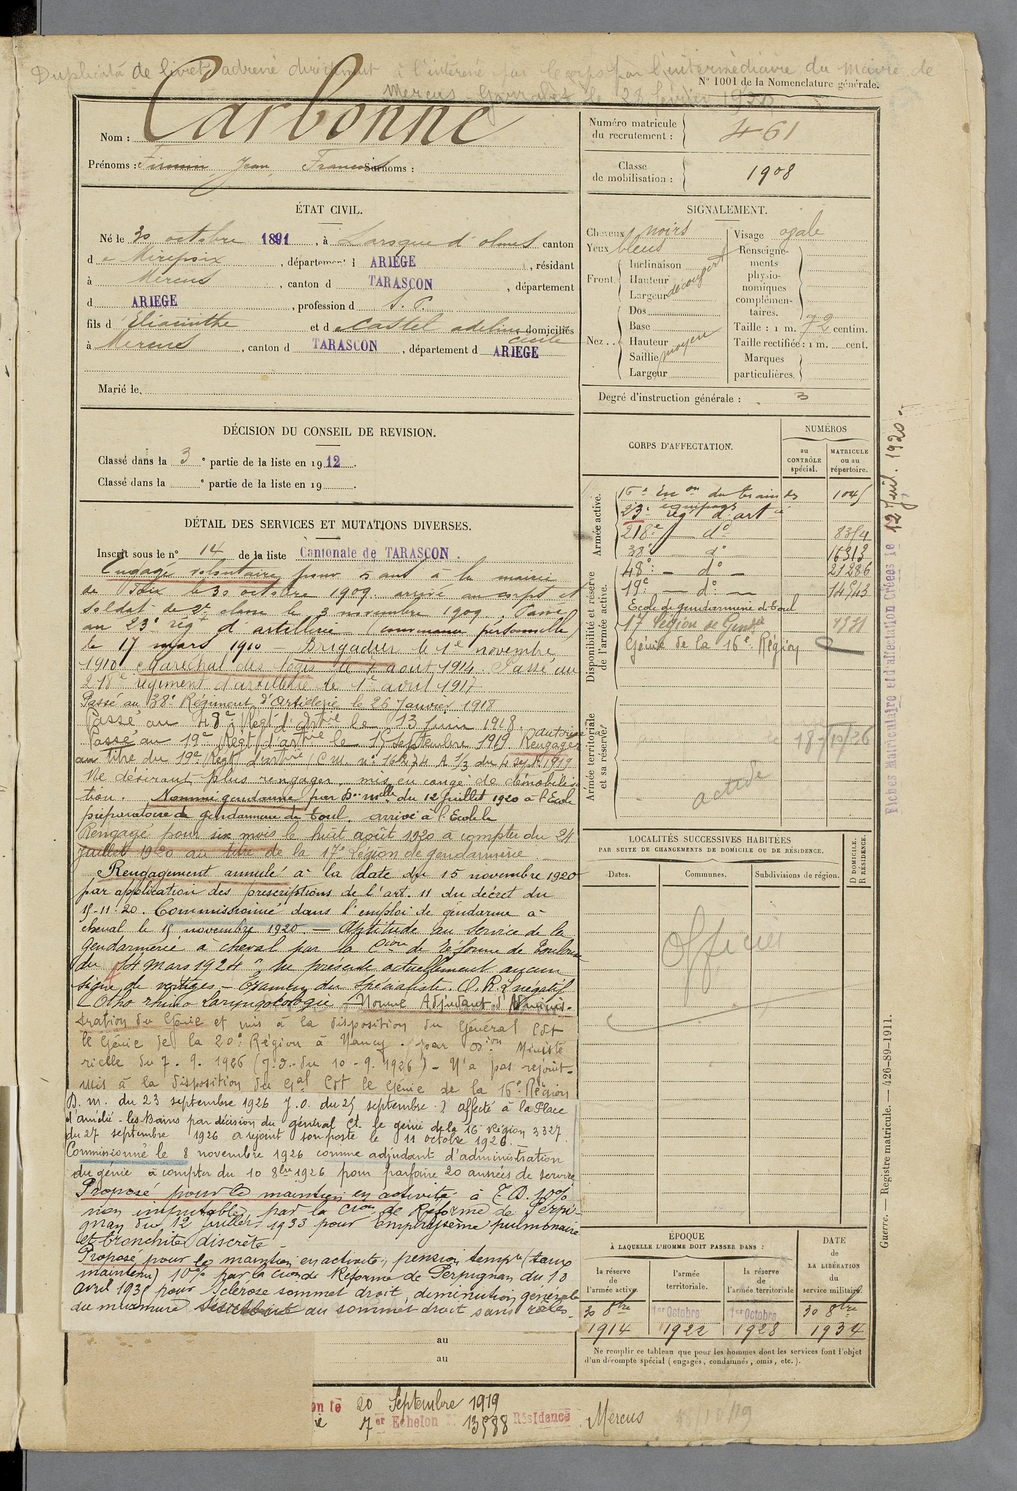 Duplicata de livret adressé directement à l'intéressé par le corps par l'intermédiaire du Maire de
Mercus Garrabet le 28 février 19
N° 1001 de la Nomenclature générale.
Nom : Carbonne
Prénoms : Firmin Jean, François Surnoms :
Numéro matricule du recrutement : 461
Classe de mobilisation : 1908
ÉTAT CIVIL.
Né le 30 octobre 1891, à Laroque d'olmes canton
d e Mirepoix, département d ARIÉGE, résidant
à Mercus, canton d TARASCON, département
d ARIEGE, profession d S. P.
fils d'Eliacinthe et de Castel adeline domiciliés
Cécile
à Mercus, canton d TARASCON, département d ARIEGE
Marié le
SIGNALEMENT.
Cheveux noirs
Yeux bleus
Front. Inclinaison
Hauteur
Largeur découvert
Nez. Dos
Base
Hauteur
Saillie moyen
Largeur
Visage ovale
Renseignements physionomiques complémentaires.
Taille : 1 m. 72 centim.
Taille rectifiée : 1 m. cent.
Marques particulières.
Degré d'instruction générale : 3
DÉCISION DU CONSEIL DE REVISION.
Classé dans la 3e partie de la liste en 1912.
Classé dans la e partie de la liste en 19
DÉTAIL DES SERVICES ET MUTATIONS DIVERSES.
Inscrit sous le n° 14 de la liste Cantonale de TARASCON.
Engagé volontaire pour 5 ans à la mairie
de Foix le 30 octobre 1909 arrivé au corps et
soldat de 2e classe le 3 novembre 1909. Passé
au 23e régt d'artillerie (convenance personnelle)
le 17 mars 1910 Brigadier le 1er novembre
1910 Maréchal des logis le 4 aout 1914. Passé au
218e régiment d'artillerie le 1er avril 1917
Passé au 38e Régiment d'Artillerie le 25 Janvier 1918
Passé au 48e Régt d'Artrie le 13 Juin 1918.
Passé au 19e Régt d'artrie le 15 septembre 1919. Autorisé Rengager
au titre du 19e Régt d'artrie C.M. n° 16474 A 1/3 du 4 sept 1919
Ne désirant plus rengager mis en congé de démobilisa-
tion. Nommé gendarme par Don mlle du 12 Juillet 1920 à l'Ecole
préparatoire de gendarmerie de Toul. arrivé à l'Ecole le
Rengagé pour six mois le huit août 1920 à compter du 24
Juillet 1920 au titre de la 17e Légion de gendarmerie
Rengagement annulé à la date du 15 novembre 1920
par application des prescriptions de l'art. 11 du décret du
15-11-20. Commissionné dans l'emploi de gendarme à
cheval le 15 novembre 1920. — Aptitude au service de la
gendarmerie à cheval par la Con de Réforme de Toulouse
du 14 mars 1924 "Ne présente actuellement aucun
signe de vertiges — Examen du Spécialiste. O.R.L négatif
(Otho rhino Laryngologie — Nommé Adjudant d'Adminis-
tration du Génie et mis à la disposition du Général Cdt
le Génie de la 20e Région à Nancy. (par Don Ministé
rielle du 7. 9. 1926 (J.O. du 10. 9. 1926) — N'a pas rejoint-
Mis à la disposition du Gal Cdt le Génie de la 16e Région
D. m. du 23 septembre 1926 J.O. du 25 septembre.) affecté à la Place
d'amélie-les-Bains par décision du général Ct. le génie de la 16 Région 3327.
du 27 septembre 1926 a rejoint son poste le 11 octobre 1926.
Commissionné le 8 novembre 1926 comme adjudant d'administration
du génie à compter du 10 8bre 1926 pour parfaire 20 années de service
Proposé pour le maintien en activité à T.D. 10%
non imputable par la Con de Réforme de Perpi-
gnan du 12 juillet 1933 pour emphysème pulmonaire
et bronchite discrète
Proposé pour le maintien en activité, pension tempre (taux
maintenu) 10% par la Con de Réforme de Perpignan du 10
avril 1935 pour Sclérose sommet droit, diminution générale
du murmure au sommet droit sans râles.
au
au
CORPS D'AFFECTATION.
NUMÉROS
au CONTRÔLE spécial.
MATRICULE ou au répertoire.
Armée active.
Disponibilité et réserve de l'armée active.
Armée territoriale et sa réserve.
16e Eon du train des équipages 1041
23e rég d'artie
218e — d° 8314
38e — d° 16313
48e — d° — 21286
19e — d° — 14943
Ecole de gendarmerie de Toul
17 Légion de Gendie 4331
Génie de la 16e Région
le 18/10/26
active
LOCALITÉS SUCCESSIVES HABITÉES
PAR SUITE DE CHANGEMENTS DE DOMICILE OU DE RÉSIDENCE.
Dates. Communes. Subdivisions de région. D DOMICILE. R RÉSIDENCE.
Officier
ÉPOQUE
À LAQUELLE L'HOMME DOIT PASSER DANS :
DATE DE LA LIBÉRATION du service militaire.
la réserve de l'armée active. l'armée territoriale. la réserve de l'armée territoriale
30 8bre 1914
1er Octobre 1922
1er Octobre 1928
30 8bre 1934
Ne remplir ce tableau que pour les hommes dont les services font l'objet
d'un décompte spécial (engagés, condamnés, omis, etc.).
on le 20 Septembre 1919
7er Echelon 13588 Résidence Mercus 18/10/19
Fiches Matriculaire et d'affectation Créées le 12 Juil. 1920.
Guerre. — Registre matricule. — 426-89-1911.